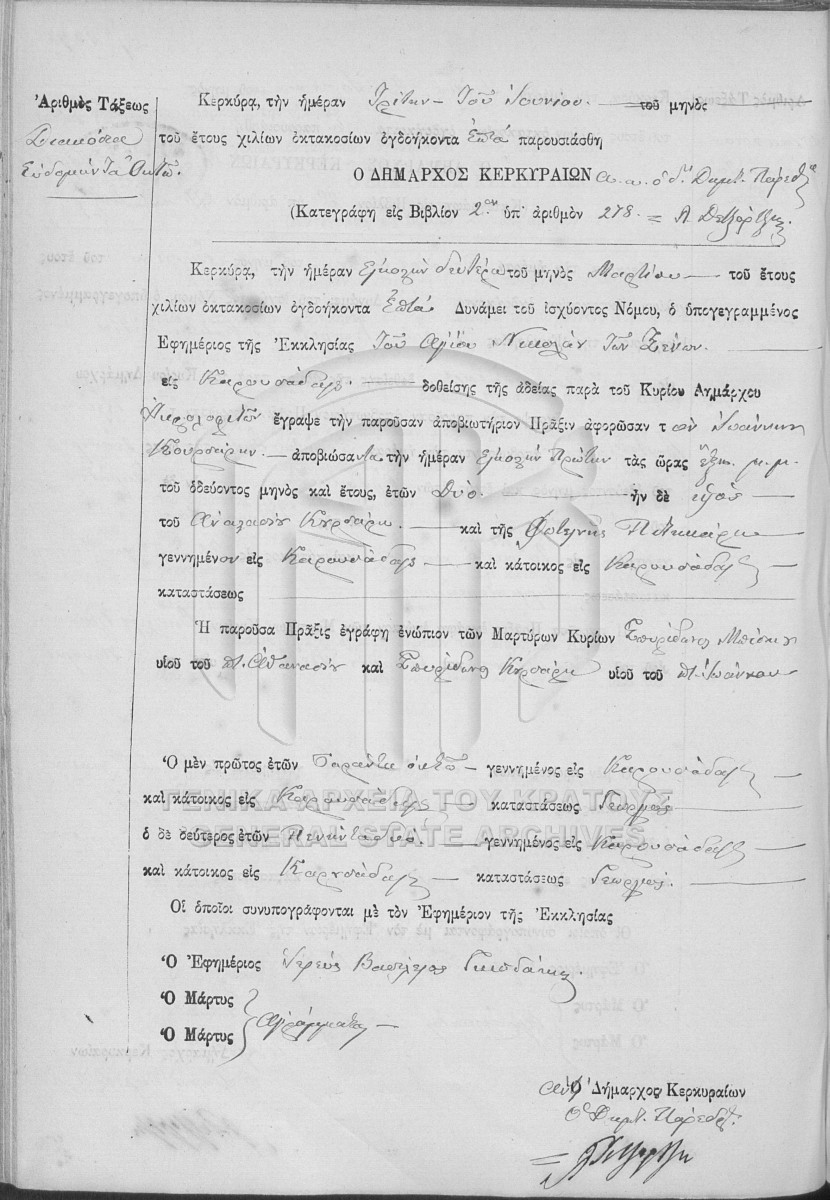 Ἀριθμὸς Τάξεως
Διακόσια
Ἑβδομῆντα Ὀκτώ.
Κερκύρᾳ, τὴν ἡμέραν Τρίτην - Τοῦ Ἰουνίου. — τοῦ μηνὸς
τοῦ ἔτους χιλίων ὀκτακοσίων ὀγδοήκοντα ἑπτά παρουσιάσθη
Ὁ ΔΗΜΑΡΧΟΣ ΚΕΡΚΥΡΑΙΩΝ α. α. ὁ δημ. Πάρεδρ
(Κατεγράφη εἰς Βιβλίον 2ον ὑπ' ἀριθμὸν 278. =
Κερκύρᾳ, τὴν ἡμέραν Εἰκοσιν δευτέρα τοῦ μηνὸς Μαρτίου — τοῦ ἔτους
χιλίων ὀκτακοσίων ὀγδοήκοντα Ἑπτά Δυνάμει τοῦ ἰσχύοντος Νόμου, ὁ ὑπογεγραμμένος
Ἐφημέριος τῆς Ἐκκλησίας Τοῦ Ἁγίου Νικολάου Τῶν Ξένων.
εἰς Καρουσάδαις. — δοθείσης τῆς ἀδείας παρὰ τοῦ Κυρίου Δημάρχου
ἔγραψε τὴν παροῦσαν ἀποβιωτήριον Πρᾶξιν ἀφορῶσαν τον Ἰωάννην
Κουρσάρην. — ἀποβιώσαντα τὴν ἡμέραν Εἰκοσιν Πρώτην τὰς ὥρας ἕξη. μ. μ.
τοῦ ὁδεύοντος μηνὸς καὶ ἔτους, ἐτῶν Δύο. — ἦν δὲ υἱός —
τοῦ Ἀναστασίου Κουρσάρη. — καὶ τῆς Φωτεινῆς
γεννημένον εἰς Καρουσάδαις — καὶ κάτοικος εἰς Καρουσάδαις
καταστάσεως
Ἡ παροῦσα Πρᾶξις ἐγράφη ἐνώπιον τῶν Μαρτύρων Κυρίων Σπυρίδωνος
υἱοῦ τοῦ π. Ἀθανασίου καὶ Σπυρίδωνος Κουρσάρη υἱοῦ τοῦ π. Ἰωάννου —
Ὁ μὲν πρῶτος ἐτῶν Σαράντα ὀκτώ — γεννημένος εἰς Καρουσάδαις —
καὶ κάτοικος εἰς Καρουσάδαις — καταστάσεως Γεωργός —
ὁ δὲ δεύτερος ἐτῶν Πενήντα δύο. — γεννημένος εἰς Καρουσάδαις —
καὶ κάτοικος εἰς Καρουσάδαις — καταστάσεως Γεωργός. —
Οἱ ὁποῖοι συνυπογράφονται μὲ τὸν Ἐφημέριον τῆς Ἐκκλησίας
Ὁ Ἐφημέριος Ἱερεὺς Βασίλειος
Ὁ Μάρτυς
Ὁ Μάρτυς Ἀγράμματοι —
Ὁ Δήμαρχος Κερκυραίων
Ὁ Δημ. Πάρεδρ.
ΓΕΝΙΚΑ ΑΡΧΕΙΑ ΤΟΥ ΚΡΑΤΟΥΣ
GENERAL STATE ARCHIVES